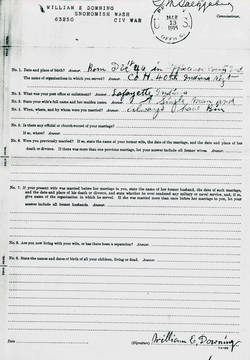 WILLIAM E DOWNING
SNOHOMISH WASH
63250 CIV WAR
Commissioner.
MAR
13
No. 1. Date and place of birth? Answer. Born Dec 1844 in Spencer County Ind
The name of organizations in which you served? Answer. Co H. 60th Indiana Regt
No. 2. What was your post office at enlistment? Answer. Lafayette Indiana
No. 3. State your wife's full name and her maiden name. Answer. A Single Man and
No. 4. When, where, and by whom were you married? Answer. always have Bin
No. 5. Is there any official or church record of your marriage?
If so, where? Answer.
No. 6. Were you previously married? If so, state the name of your former wife, the date of the marriage, and the date and place of her death or divorce. If there was more than one previous marriage, let your answer include all former wives. Answer.
No. 7. If your present wife was married before her marriage to you, state the name of her former husband, the date of such marriage,
and the date and place of his death or divorce, and state whether he ever rendered any military or naval service, and, if so,
give name of the organization in which he served. If she was married more than once before her marriage to you, let your
answer include all former husbands. Answer.
No. 8. Are you now living with your wife, or has there been a separation? Answer.
No. 9. State the names and dates of birth of all your children, living or dead. Answer.
Date
(Signature) William E, Downing